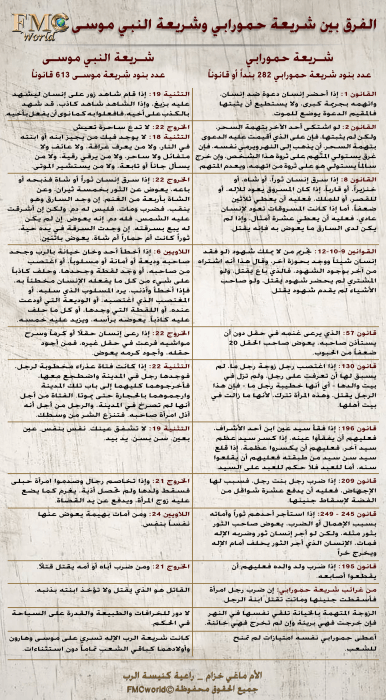 FMC World
الفرق بين شريعة حمورابي وشريعة النبي موسى
شريعة حمورابي
عدد بنود شريعة حمورابي 282 بنداً أو قانوناً
شريعة النبي موسى
عدد بنود شريعة موسى 613 قانوناً
القانون 1: إذا أحضر إنسان دعوة ضد إنسان،
واتهمه بجريمة كبرى، ولا يستطيع أن يثبتها
فالمقيم الدعوة يوضع للموت.
التثنية 19: إذا قام شاهد زور على إنسان ليشهد
عليه بزيغ، وإذا الشاهد شاهد كاذب، قد شهد
بالكذب على أخيه، فافعلوا به كما نوى أن يفعل بأخيه.
القانون 2: لو اشتكى أحد الآخر بتهمة السحر،
ولكن لم يثبتها فإن على الذي أقيمت عليه الدعوى
بتهمة السحر، أن يذهب إلى النهر ويرمي نفسه، فإن
غرق يستولي المتهم على ثروة هذا الشخص، وإن خرج
الخروج 22: لا تدع ساحرة تعيش
التثنية 18: لا يوجد فيك من يجيز ابنه أو ابنته
في النار، ولا من يعرف عرافة، ولا عائف ولا
متفائل ولا ساحر، ولا من يرقي رقية، ولا من
يسأل جاناً أو تابعة، ولا من يستشير الموتى
القانون 8: إذا سرق إنسان ثوراً، أو شاة، أو
خنزيراً، أو قارباً، إذا كان المسروق يعود للإله، أو
للقصر، أو للملك، فعليه أن يعطي ثلاثين
ضعفاً. أما إذا كانت المسروقات تعود لإنسان
عادي، فعليه أن يعطي عشرة أمثال، وإذا لم
يكن لدى السارق ما يعوض به فإنه يقتل
الخروج 22: إذا سرق إنسان ثوراً أو شاة فذبحه أو
باعه، يعوض عن الثور بخمسة ثيران، وعن
الشاة بأربعة من الغنم. إن وجد السارق وهو
ينقب، فضرب ومات، فليس له دم. ولكن إن أشرقت
عليه الشمس، فله دم. إنه يعوض. إن لم يكن
له يبع بسرقته. إن وجدت السرقة في يده حية،
ثوراً كانت أم حماراً أم شاة، يعوض باثنين
القوانين 9-10-12:
اللاويين 6: إذا أخطأ أحد وخان خيانة بالرب وجحد
صاحبه وديعة أو أمانة أو مسلوباً، أو اغتصب
من صاحبه، أو وجد لقطة وجحدها، وحلف كاذباً
على شيء من كل ما يفعله الإنسان مخطئاً به،
فإذا أخطأ وأذنب، يرد المسلوب الذي سلبه، أو
المغتصب الذي اغتصبه، أو الوديعة التي أودعت
عنده، أو اللقطة التي وجدها، أو كل ما حلف
عليه كاذباً، يعوضه برأسه، ويزيد عليه خمسه.
القانون 57: الذي يرعى غنمه في حقل دون أن
يستأذن صاحبه، يعوض صاحب الحقل 20
ضعفاً من الحبوب.
الخروج 22: إذا رعى إنسان حقلاً أو كرماً وسرح
مواشيه فرعت في حقل غيره، فمن أجود
حقله، وأجود كرمه يعوض.
القانون 130: إذا اغتصب رجل زوجة رجل ما، لم
يسبق لها أن تعرفت على رجل، ولم تزل في
بيت والدها - أي أنها خطيبة رجل ما - فإن هذا
الرجل يقتل، وهذه المرأة تترك، لأنها ما زالت في
بيت أهلها.
التثنية 22: إذا كانت فتاة عذراء مخطوبة لرجل،
فوجدها رجل في المدينة واضطجع معها،
فأخرجوهما كليهما إلى باب تلك المدينة
وارجموهما بالحجارة حتى يموتا. الفتاة من أجل
أنها لم تصرخ في المدينة، والرجل من أجل أنه
أذل امرأة صاحبه. فتنزع الشر من وسطك.
القانون 196: إذا فقأ سيد عين ابن أحد الأشراف،
فعليهم أن يفقأوا عينه. إذا كسر سيد عظم
سيد آخر، فعليهم أن يكسروا عظمة، إذا قلع
سيد سن سيد من طبقته فعليهم أن يقلعوا
سنه. أما للعبد فلا حكم للعبد على السيد
التثنية 19: لا تشفق عينك. نفس بنفس. عين
بعين. سن بسن. يد بيد.
القانون 209: إذا ضرب رجل بنت رجل، فسبب لها
الإجهاض، فعليه أن يدفع عشرة شواقل من
الفضة لإسقاط جنينها
الخروج 21: وإذا تخاصم رجال وصدموا امرأة حبلى
فسقط ولدها ولم تحصل أذية، يغرم كما يضع
عليه زوج المرأة، ويدفع عن يد القضاة
القانون 245 - 249: إذا استأجر أحدهم ثوراً وأماته
بسبب الإهمال أو الضرب، يعوض صاحب الثور
بثور مثله. ولكن لو أجر إنسان ثور وضربه الإله
فمات، الإنسان الذي أجر الثور يحلف أمام الإله
ويخرج حراً
اللاويين 24: ومن أمات بهيمة يعوض عنها
نفساً بنفس.
القانون 195: إذا ضرب ولد والده فعليهم أن
يقطعوا أصابعه.
الخروج 21: ومن ضرب أباه أو أمه يقتل قتلاً.
من غرائب شريعة حمورابي: إن ضرب رجل امرأة
فأسقطت جنينها وماتت تقتل ابنة الرجل
القاتل هو الذي يُقتل ولا تؤخذ ابنته بذنبه.
الزوجة المتهمة بالخيانة تلقي نفسها في النهر
فإن خرجت فهي بريئة وإن لم تخرج فهي خائنة.
لا دور للخرافات والطبيعة والقدرة على السباحة
في الحكم.
أعطى حمورابي نفسه امتيازات لم تمنح
للشعب.
كانت شريعة الرب الإله تسري على موسى وهارون
وأولادهما كباقي الشعب تماماً دون استثناءات.
الأم ماغي خزام _ راعية كنيسة الرب
جميع الحقوق محفوظة FMCworld©